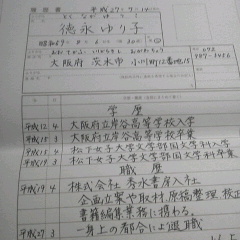 履歴書 平成27年9月14日
とくなが ゆりこ
徳永ゆり子
昭和59年8月2日
おおさかふ いばらきし おがわちょう
大阪府 茨木市 小川町12番地15
学歴
平成12.4 大阪府立岸谷高等学校入学
平成15.3 大阪府立岸谷高等学校卒業
平成15.4 松下女子大学文学部国文学科入学
平成19.3 松下女子大学文学部国文学科卒業
職歴
平成19.4 株式会社秀水書房入社
企画立案や取材、原稿整理、校正
書籍編集業務に携わる。
平成27.3 一身上の都合により退職